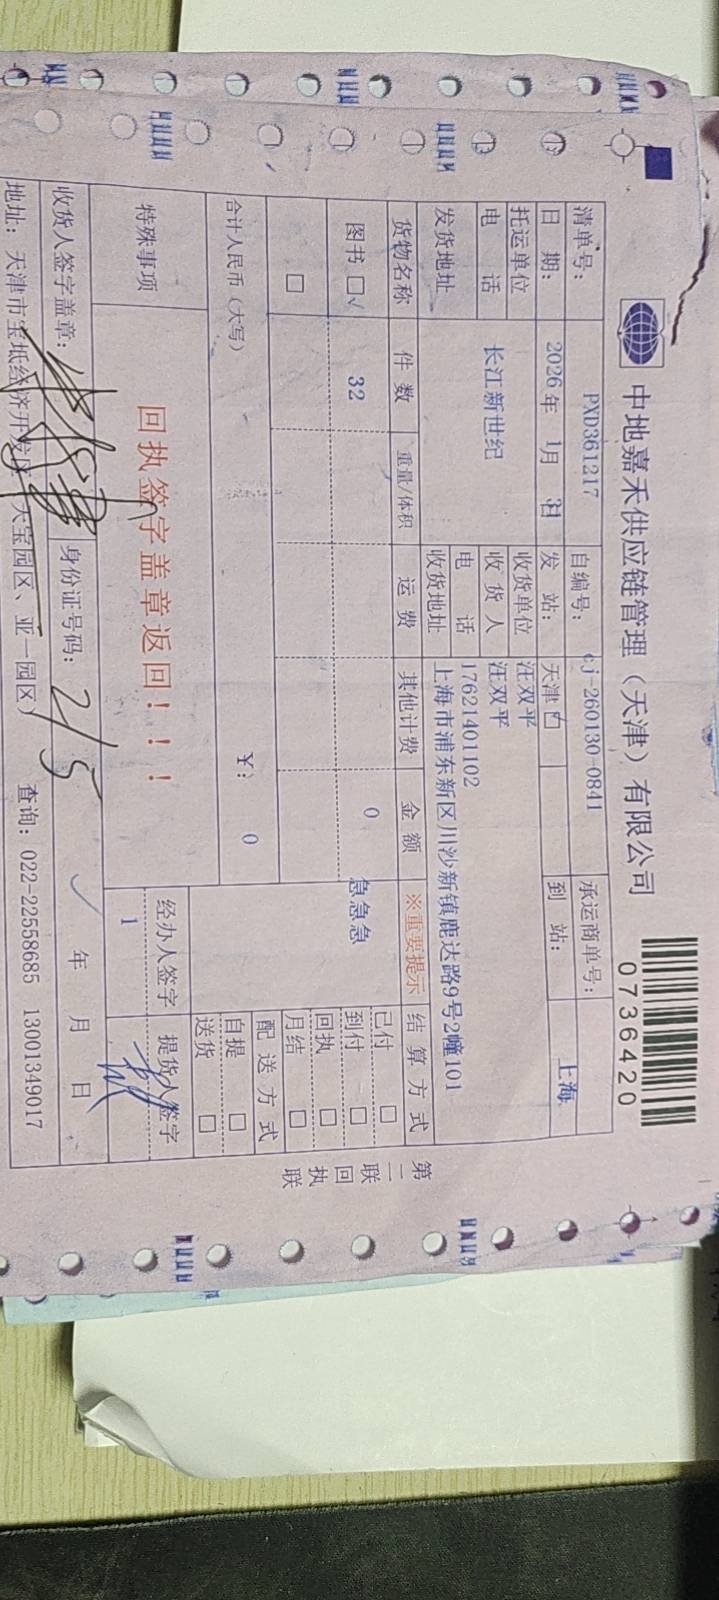 中地嘉禾供应链管理（天津）有限公司
0736420
清单号： PXD361217 自编号： cj-260130-0841 承运商单号：
日 期： 2026年 1月 发 站： 天津 到 站： 上海
托运单位 收货单位 汪双平
电 话 长江新世纪 收 货 人 汪双平
电 话 17621401102
发货地址 收货地址 上海市浦东新区川沙新镇鹿达路9号2幢101
货物名称 件 数 重量/体积 运 费 其他计费 金 额 ※重要提示 结 算 方 式
图书 □√ 32 0 急急急 已付 □
到付 □
回执 □
□ 月结 □
合计人民币（大写） ￥： 0 配 送 方 式
自提 □
送货 □
特殊事项 回执签字盖章返回！！！ 经办人签字 提货人签字
1
收货人签字盖章： 身份证号码： 2/5 √ 年 月 日
地址：天津市宝坻经济开发区（天宝园区、亚一园区） 查询：022-22558685 13001349017
第二联 回执联